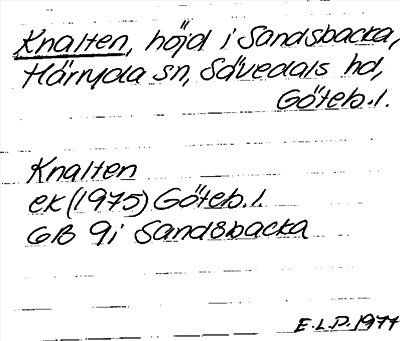 Knalten, höjd i Sandsbacka,
Härryda sn, Sävedals hd,
Göteb. l.
Knalten
ek (1975) Göteb. l.
6B 9i Sandsbacka
E.L.P. 1977